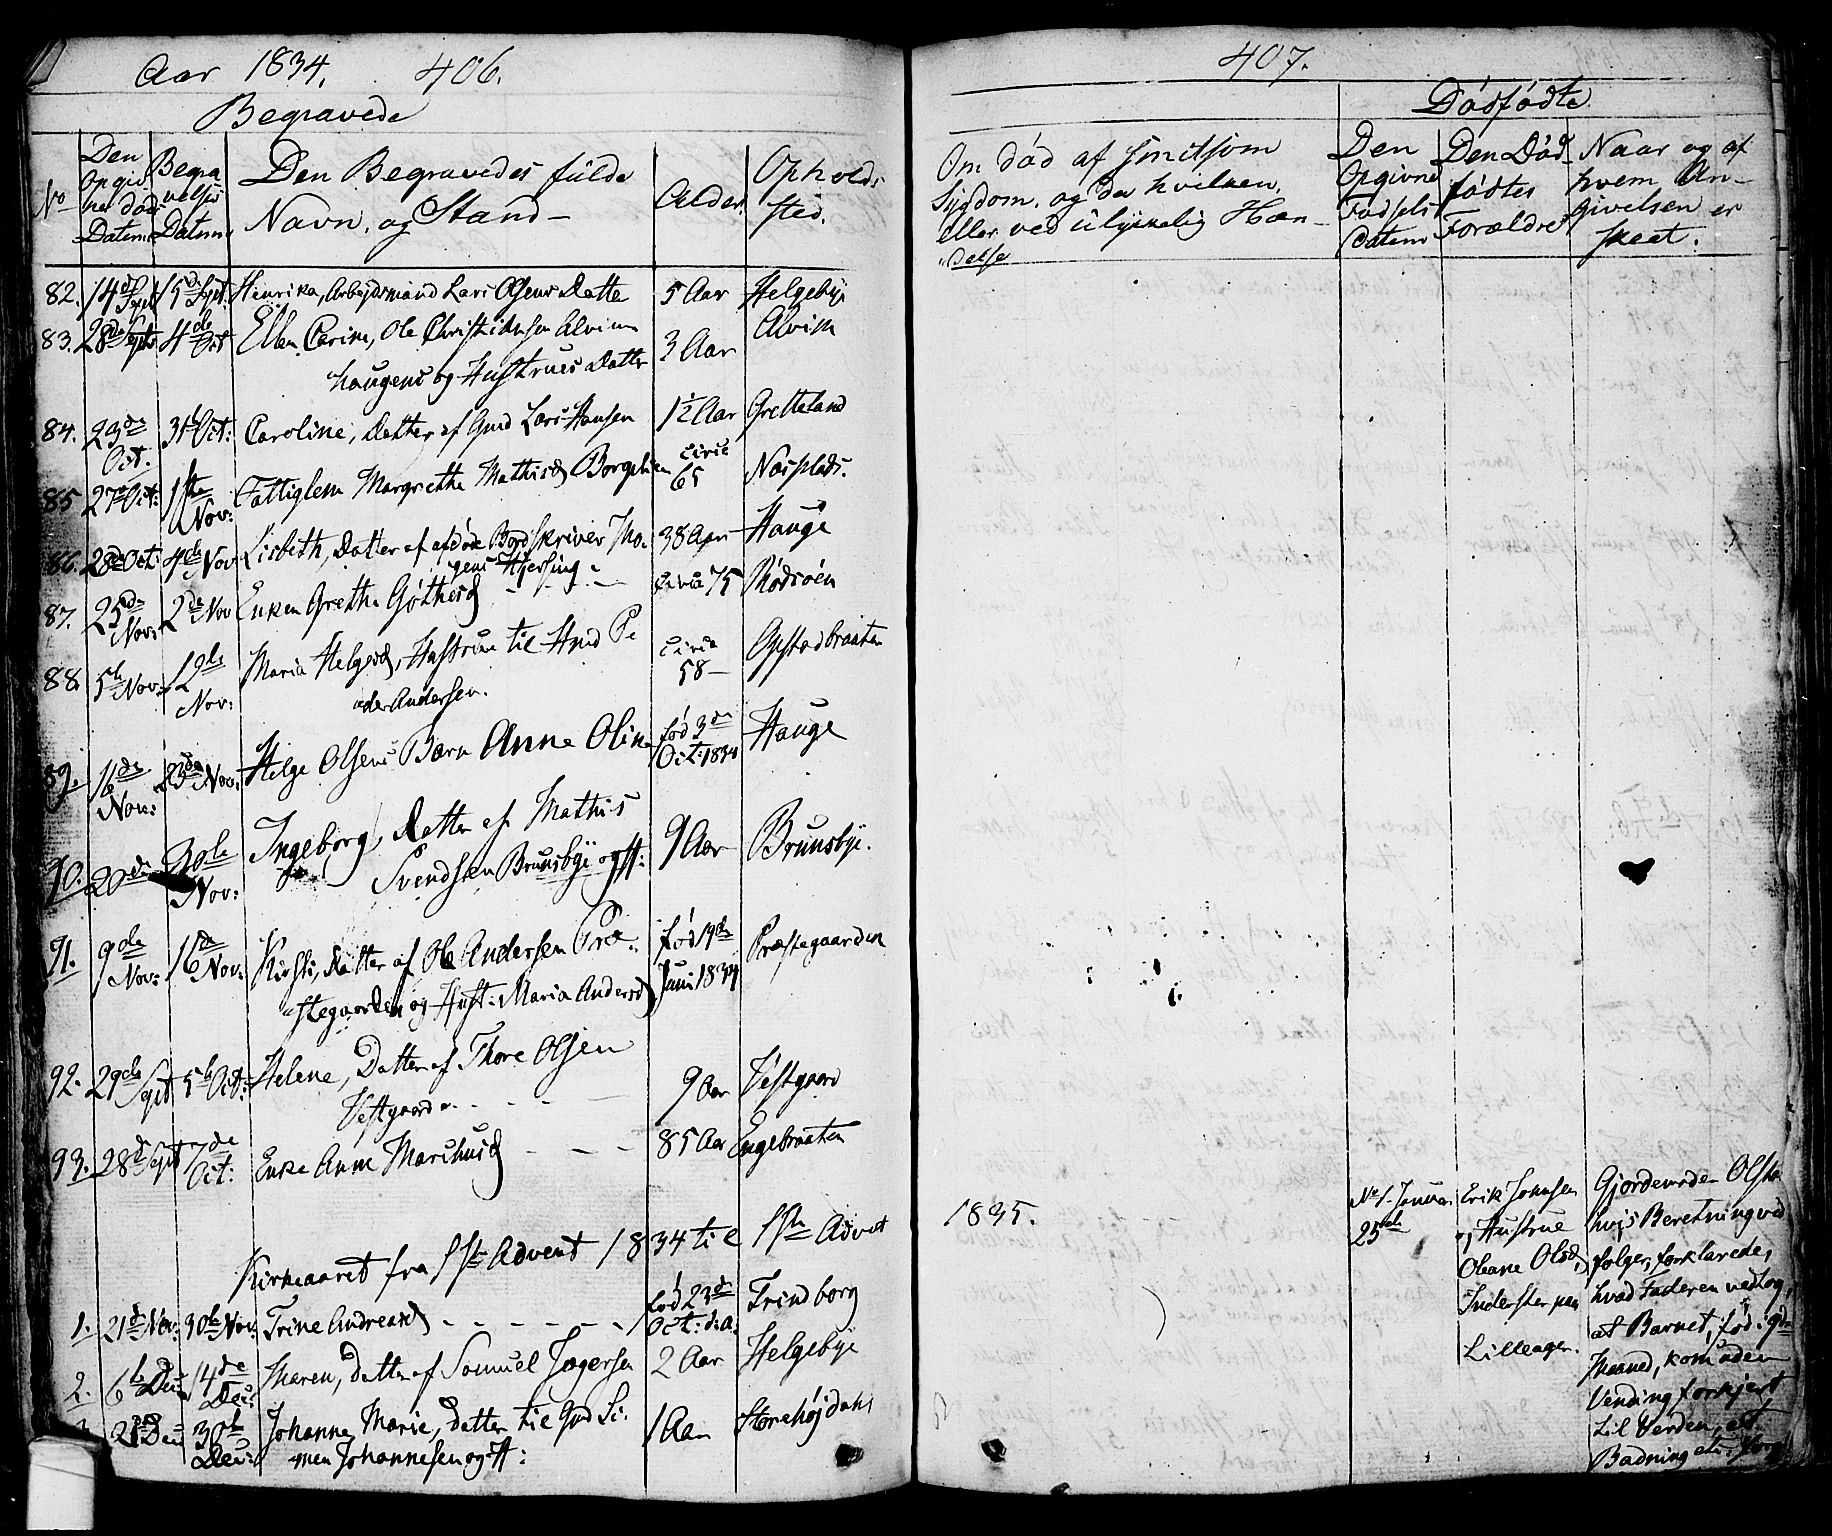 Aar 1834. 406.
Begravede
No
Den Opgivne døds Datum
Begravelses Datum
Den Begravedes fulde Navn, og Stand
Alder
Opholds sted.
82. 14de Sept 15de Sept. Henrika, Arbejdsmand Lars Olsens Datter 5 Aar Helgebye
83. 28de Septr 4de Oct Ellen Carine, Ole Christiansen Alvim
haugens og Hustrues Datter 3 Aar Alvim
84. 23de Oct. 31te Oct: Caroline, Datter af Gmd Lars Hansen 1½ Aar Gretteland
85 27de Oct: 1ste Nov: Fattiglem Margrethe Mathisd Borgehsen circa 65 Nesplads.
86. 28de Oct: 4de Nov Lisbeth, Datter af afdøde Bordskriver Mo-
gens Hjersing 38 Aar Hauge
87. 25de Nov: 2de Nov Enken Grethe Gøthesd - - - circa 75 Rødsøen
88. 5te Nov: 12te Nov: Maria Helgesd, Hustrue til Hmd Pe
der Andersen. circa 58 - Opstadbraaten
89. 16de Nov: 23de Nov: Helge Olsens Barn Anne Oline fød 3de Oct: 1834 Hauge
90. 20de 30te Nov: Ingeborg, Datter af Mathis
Svendsen Brunsbye og H: 9 Aar Brunsbye.
91. 9de Nov: 16de Nov: Kirsti, Datter af Ole Andersen Præ-
stegaarden og Hust: Maria Andersd fød 19de Juni 1834 Præstegaarden
92. 29de Sept 5te Oct: Helene, Datter af Thore Olsen
Vestgaard - - - 9 Aar Vestgaard
93. 28de Sept 7de Oct: Enke Anne Marthusd - - - 85 Aar Engebraaten
Kirkeaaret fra 1ste Advent 1834 til 1ste Advet
1. 21de Nov: 30te Nov: Trine Andreasd - - - - fød 23de Oct: d: A: Trindborg
2. 6te Dec: 14de Dec: Maren, datter af Samuel Jægersen 2 Aar Helgebye
21de Dec 30te Dec: Johanne Marie, datter til Gmd Si-
men Johannesen og H: 1 Aar Storehøjdahl
407.
Dødfødte
Om død af smitsom
Sygdom, og da hvilken,
eller ved ulykkelig Hæn-
delse
Den Opgivne Fødsels Datum
Den Død- fødtes Forældre
Naar og af hvem An- givelsen er skeet.
1835.
No 1. Januar 25de
Erik Jonsen
og Hustrue
Oleane Olsd,
Inderster paa
Lilleager.
Gjordemode Olsen
hvis Beretning ved
følger, forklarede,
hvad Faderen vedtog,
at Barnet, fød i 9de
Maaned, kom uden
Vending forkjert
til Verden, at
Badning etc: forg